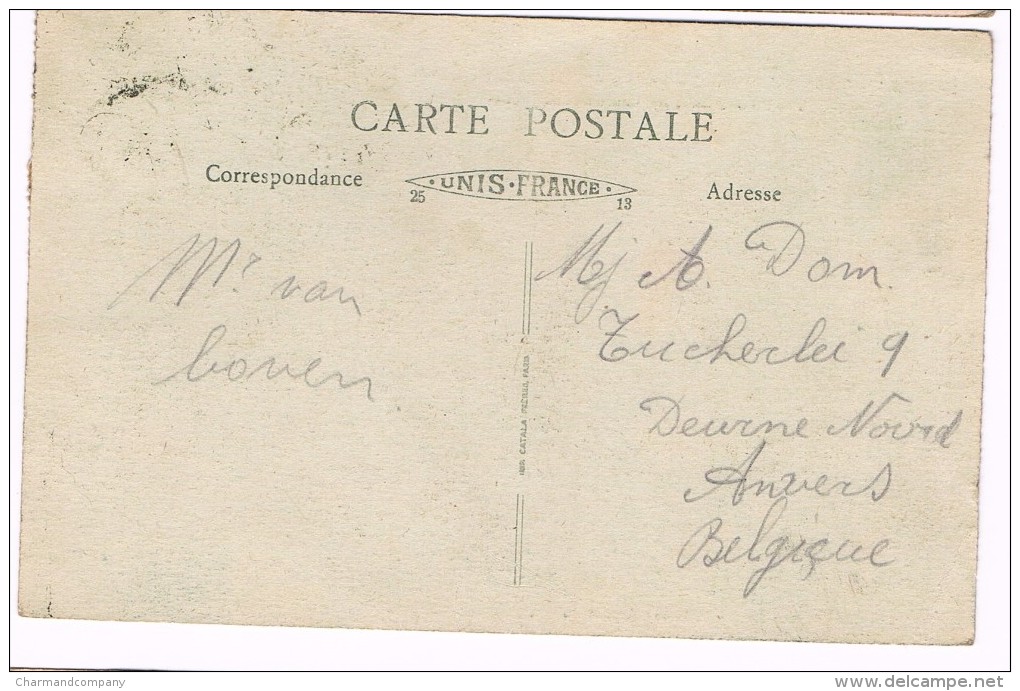 CARTE POSTALE
Correspondance
25 · UNIS · FRANCE · 13
Adresse
Mr. van
boven.
Mj A. Dom.
Tucherlei 9
Deurne Noord
Anvers
Belgique
IMP. CATALA FRÈRES, PARIS
Charmandcompany
www.delcampe.net